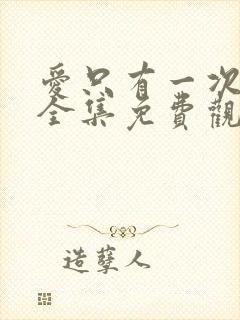 愛只有一次
全集免費觀
造孽人